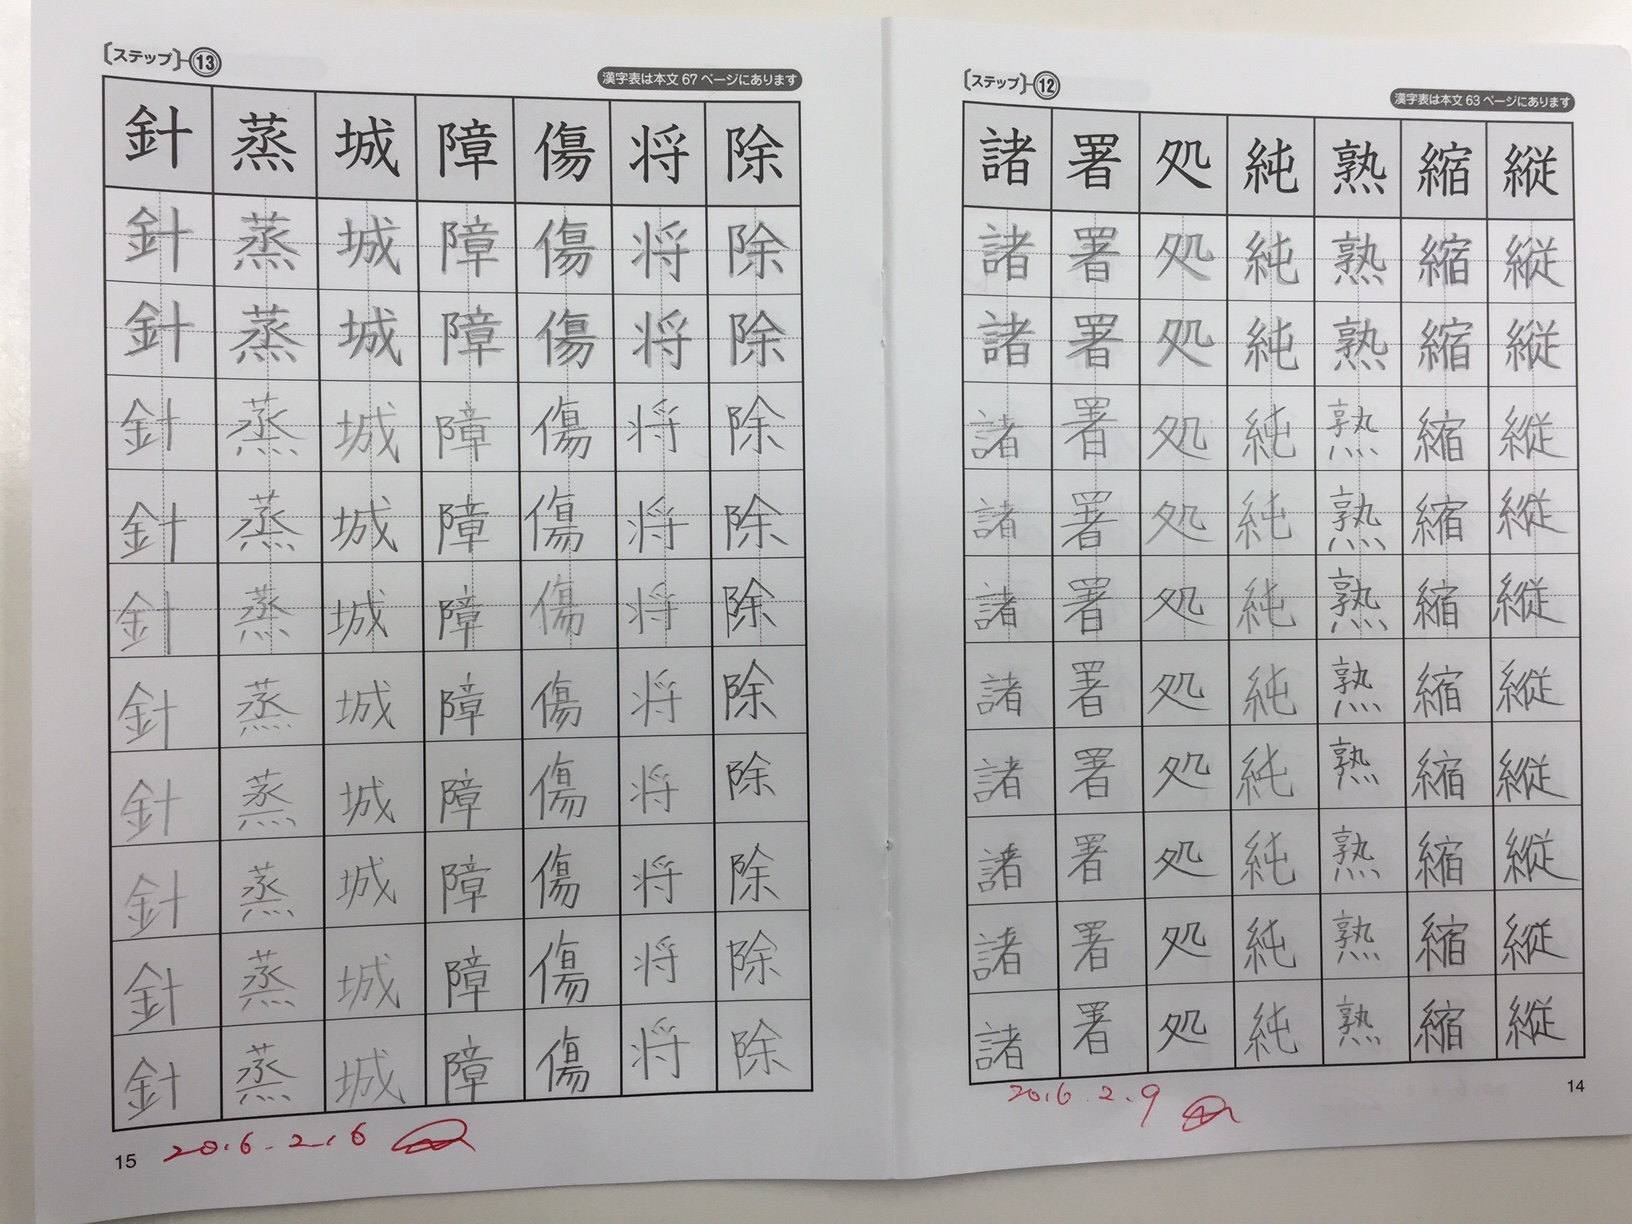 〔ステップ〕13
漢字表は本文67ページにあります
針 蒸 城 障 傷 将 除
針 蒸 城 障 傷 将 除
針 蒸 城 障 傷 将 除
針 蒸 城 障 傷 将 除
針 蒸 城 障 傷 将 除
針 蒸 城 障 傷 将 除
針 蒸 城 障 傷 将 除
針 蒸 城 障 傷 将 除
針 蒸 城 障 傷 将 除
針 蒸 城 障 傷 将 除
針 蒸 城 障 傷 将 除
15
2016.2.6
〔ステップ〕12
漢字表は本文63ページにあります
諸 署 処 純 熟 縮 縦
諸 署 処 純 熟 縮 縦
諸 署 処 純 熟 縮 縦
諸 署 処 純 熟 縮 縦
諸 署 処 純 熟 縮 縦
諸 署 処 純 熟 縮 縦
諸 署 処 純 熟 縮 縦
諸 署 処 純 熟 縮 縦
諸 署 処 純 熟 縮 縦
諸 署 処 純 熟 縮 縦
諸 署 処 純 熟 縮 縦
2016.2.9
14